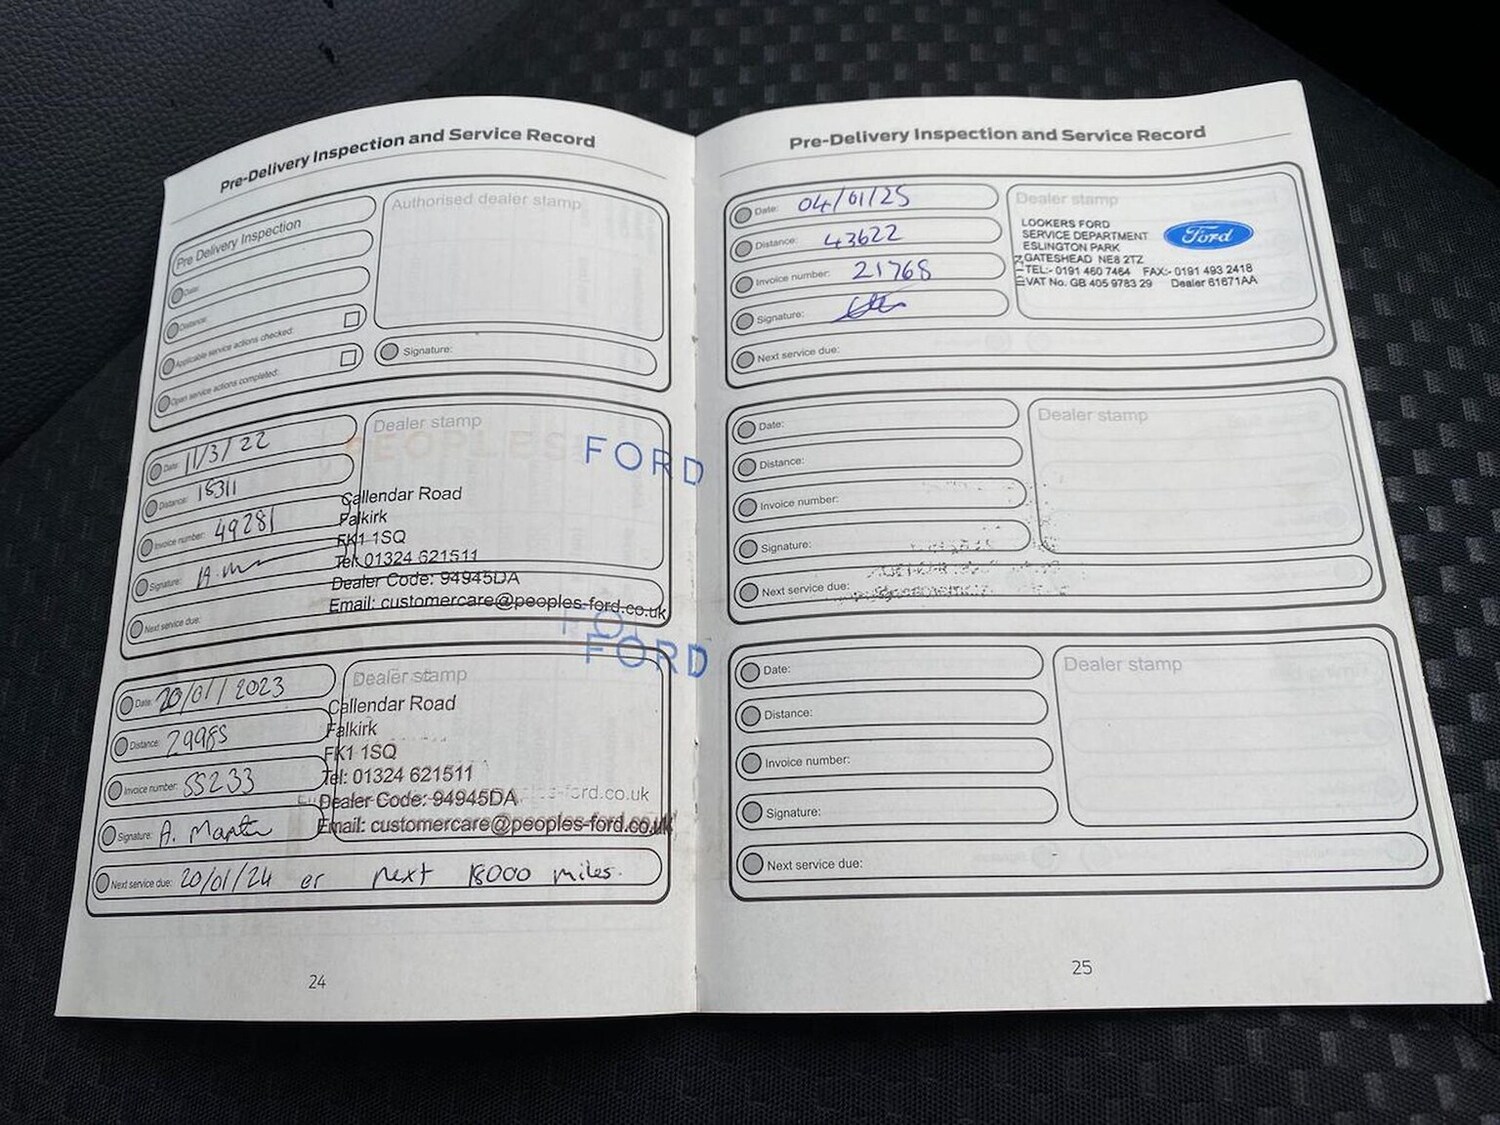 Pre-Delivery Inspection and Service Record
Pre Delivery Inspection
Date:
Distance:
Applicable service actions checked:
Open service actions completed:
Authorised dealer stamp
Signature:
Date: 11/3/22
Distance: 15311
Invoice number: 49281
Signature:
Next service due:
Dealer stamp
PEOPLES FORD
Callendar Road
Falkirk
FK1 1SQ
Tel: 01324 621511
Dealer Code: 94945DA
Email: customercare@peoples-ford.co.uk
Date: 20/01/2023
Distance: 29985
Invoice number: 55233
Signature: A. Martin
Next service due: 20/01/24 or next 18000 miles.
Dealer stamp
FORD
Callendar Road
Falkirk
FK1 1SQ
Tel: 01324 621511
Dealer Code: 94945DA
Email: customercare@peoples-ford.co.uk
24
Pre-Delivery Inspection and Service Record
Date: 04/01/25
Distance: 43622
Invoice number: 21768
Signature:
Next service due:
Dealer stamp
LOOKERS FORD
SERVICE DEPARTMENT
ESLINGTON PARK
GATESHEAD NE8 2TZ
TEL:- 0191 460 7464 FAX:- 0191 493 2418
VAT No. GB 405 9783 29 Dealer 61671AA
Ford
Date:
Distance:
Invoice number:
Signature:
Next service due:
Dealer stamp
Date:
Distance:
Invoice number:
Signature:
Next service due:
Dealer stamp
25